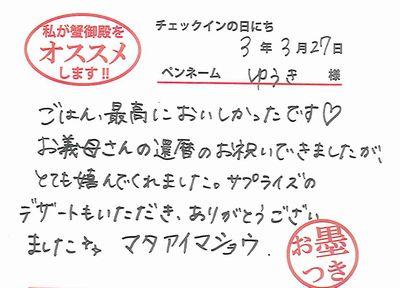 私が蟹御殿を
オススメ
します!!
チェックインの日にち
3年3月27日
ペンネーム ゆうき 様
ごはん、最高においしかったです♡
お義母さんの還暦のお祝いできましたが、
とても嬉んでくれました。サプライズの
デザートもいただき、ありがとうござい
ました マタアイマショウ.
お墨
つき